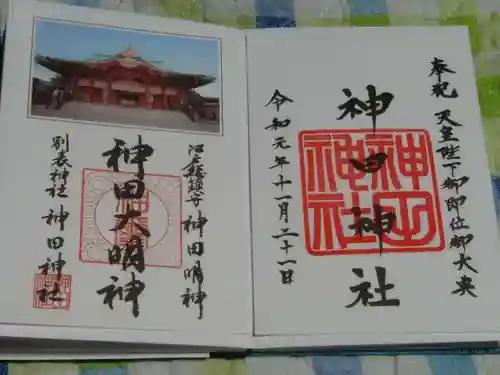 奉祝 天皇陛下御即位御大典
神田神社
令和元年十一月二十一日
江戸総鎮守 神田明神
神田大明神
別表神社 神田神社